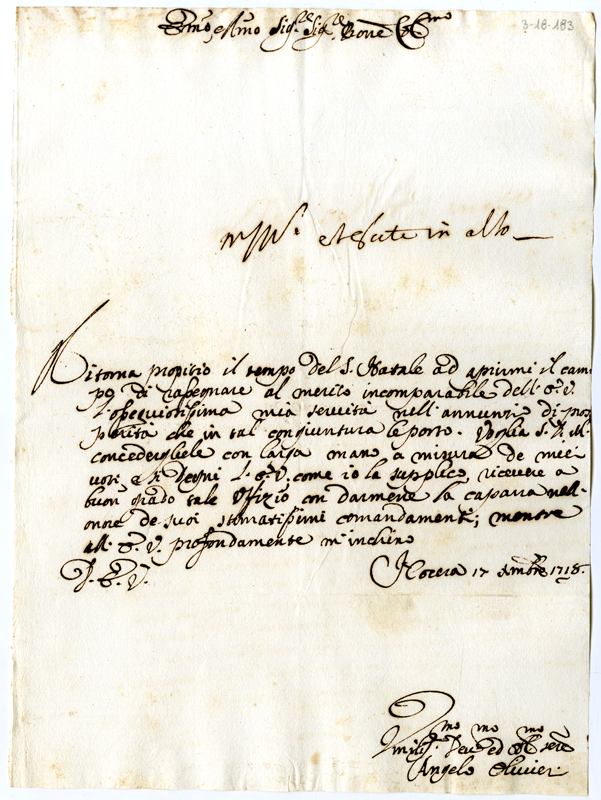 3-18-183
Emo, e Rmo Sig.re Sig.re Prone Colmo
Ritorna propizio il tempo del S. Natale ad aprirmi il cam-
po di rasegnare al merito incomparabile dell' E. V.
l'ossequiosissima mia servitù nell' annunzio di pros-
perità che in tal congiuntura le porto. Voglia S. D. M.
concederglile con larga mano a misura de miei
voti, e si degni L' E. V. come io la supplico, ricevere a
buon grado tale Uffizio con darmene la caparra nell-
onore de suoi stimatissimi comandamenti; mentre
all' E. V. profondamente m'inchino
D. E. V.
Nocera 17 Xmbre 1718.
Umilis.mo Dev.mo ed Obl.mo sere
Angelo Olivier